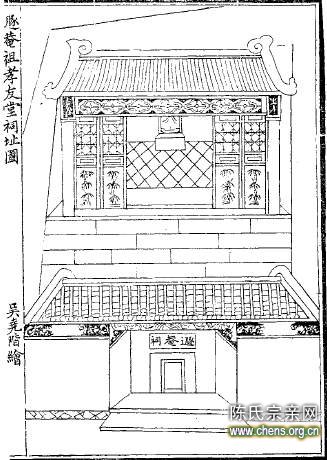 豚菴祖孝友堂祠址圖
遯菴祠
吳堯階繪
陈氏宗亲网
www.chens.org.cn